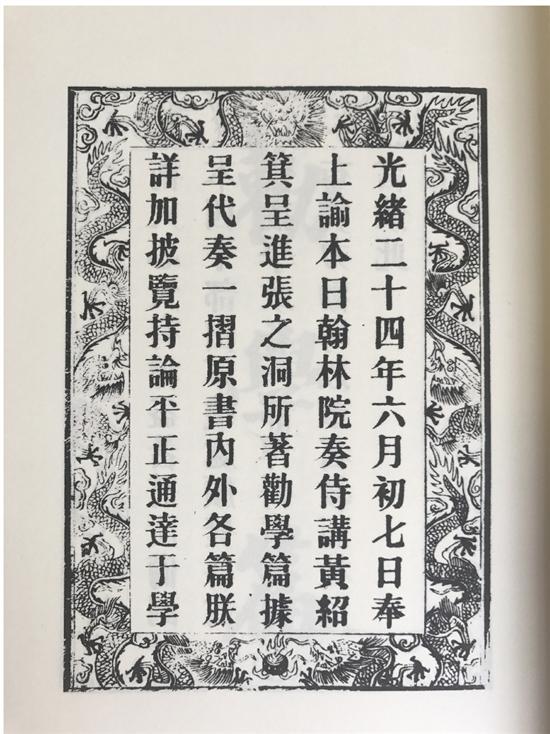 光緒二十四年六月初七日奉
上諭本日翰林院奏侍講黃紹
箕呈進張之洞所著勸學篇據
呈代奏一摺原書內外各篇朕
詳加披覽持論平正通達于學